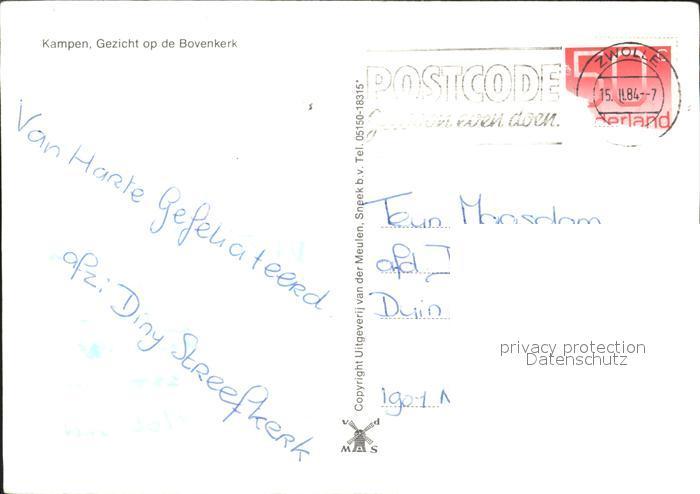 Kampen, Gezicht op de Bovenkerk
POSTCODE
Gewoon even doen.
ZWOLLE
15. II.84-7
50c
derland
Van Harte Gefeliciteerd.
afz: Diny Streefkerk
Copyright Uitgeverij van der Meulen, Sneek b.v. Tel. 05150-18315*
Teun Maasdam
afd
Duin
1901
privacy protection
Datenschutz
v d
MAS